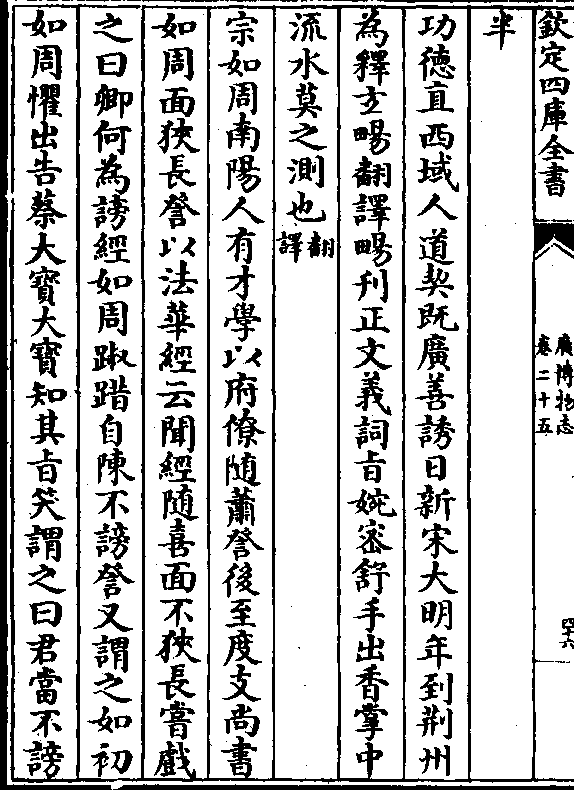 欽定四庫全書
廣博物志
卷二十五
四十六
半
功德直西域人道契既廣善誘日新宋大明年到荆州
為釋玄暢翻譯暢刋正文義詞㫖婉密舒手出香掌中
流水莫之測也翻譯
宗如周南陽人有才學以府僚随蕭詧後至度支尚書
如周面狹長詧以法華經云聞經随喜面不狹長嘗戲
之曰卿何為謗經如周踧踖自陳不謗詧又謂之如初
如周懼出告蔡大寶大寶知其㫖笑謂之曰君當不謗